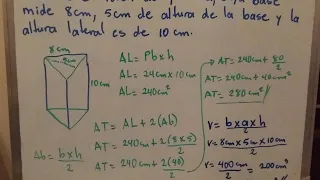 mide 8cm, 5cm de altura de la base y la
altura lateral es de 10cm.
8cm
10cm
AL= Pb x h
AL= 24cm x 10cm
AL= 240cm²
AT= AL + 2(Ab)
AT= 240cm + 2(8x5)/2
AT= 240cm + 2(40)/2
Ab= bxh/2
AT= 240cm + 80/2
AT= 240cm + 40cm²
AT= 280cm²
V= bxaxh/2
V= 8cm x 5cm x 10cm/2
V= 400cm/2 = 200cm³